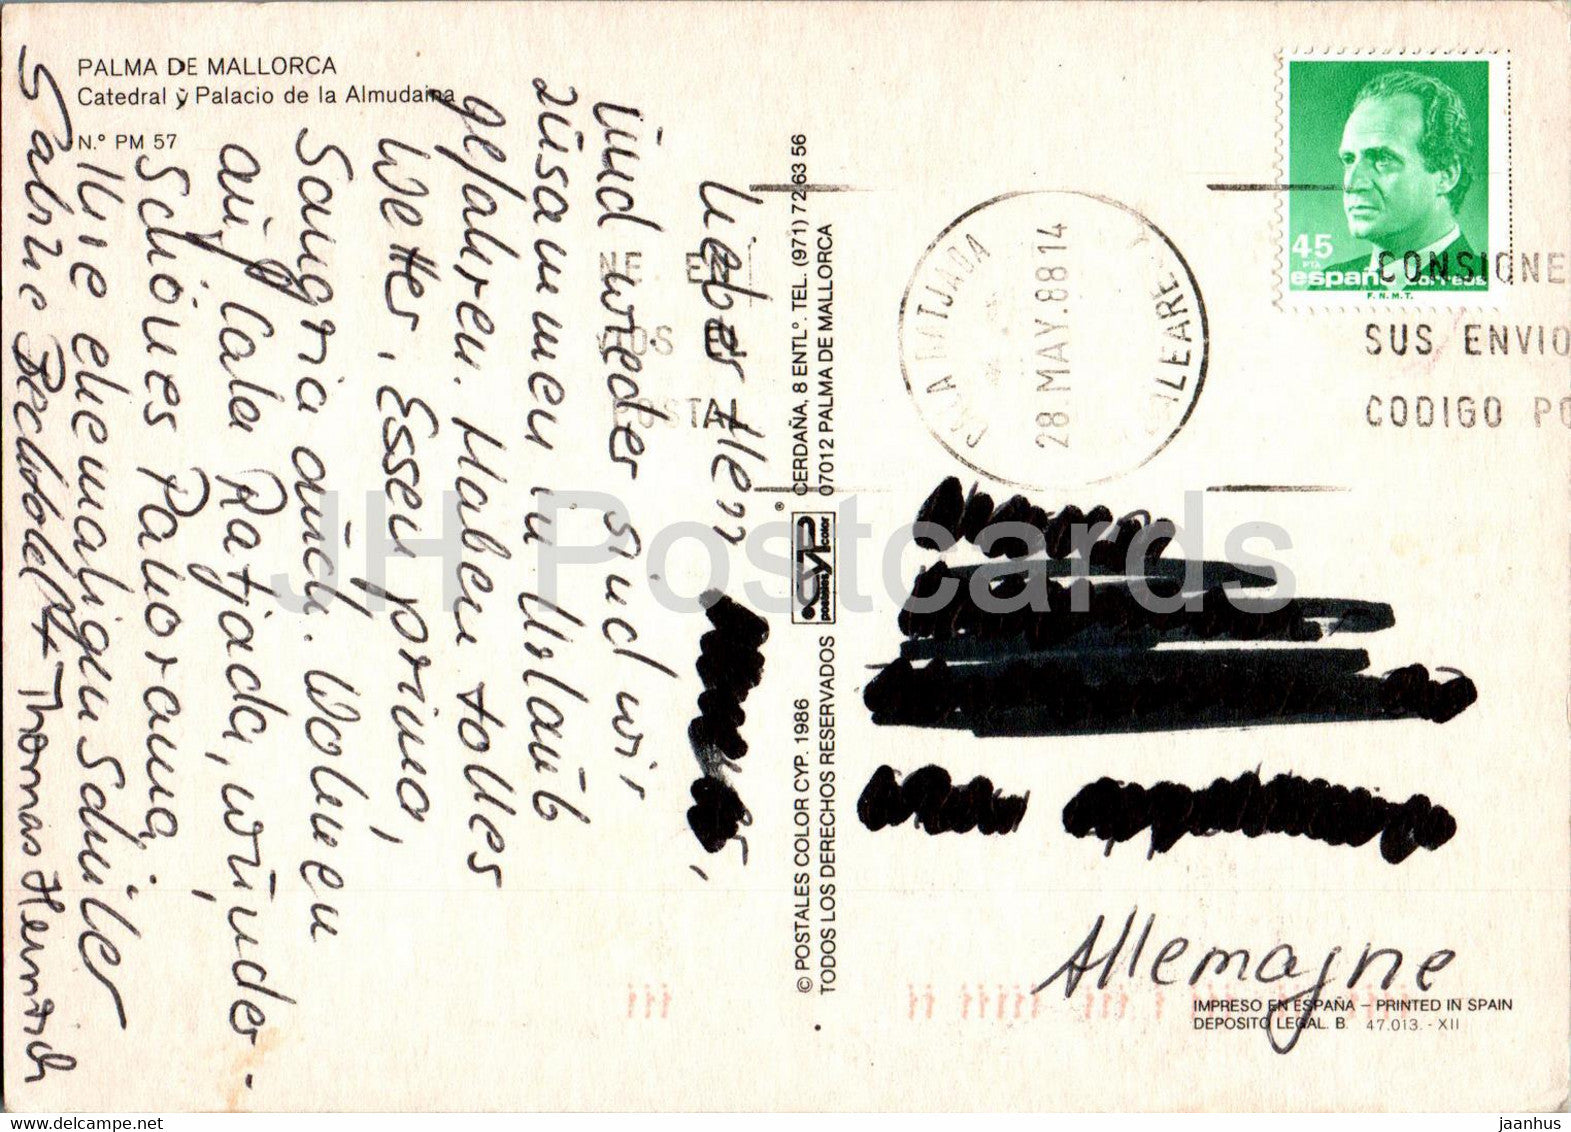 PALMA DE MALLORCA
Catedral y Palacio de la Almudaina
N.º PM 57
Lieber Herr
und wieder sind wir
zusammen in Urlaub
gefahren. Haben tolles
Wetter, Essen prima,
Sangria auch. Wohnen
auf Cala Ratjada, wunder-
schönes Panorama,
Ihre ehemaligen Schüler
Sabine Bechtold + Thomas Hemrich
CERDAÑA, 8 ENTL.º TEL. (971) 72 63 56
07012 PALMA DE MALLORCA
postales color
© POSTALES COLOR CYP. 1986
TODOS LOS DERECHOS RESERVADOS
CALA RATJADA
28 MAY. 88 14
BALEARES
45
PTA
españa correos
F.N.M.T.
CONSIGNE
SUS ENVIO
CODIGO PO
Allemagne
IMPRESO EN ESPAÑA – PRINTED IN SPAIN
DEPOSITO LEGAL. B. 47.013. - XII
JH Postcards
www.delcampe.net
jaanhus